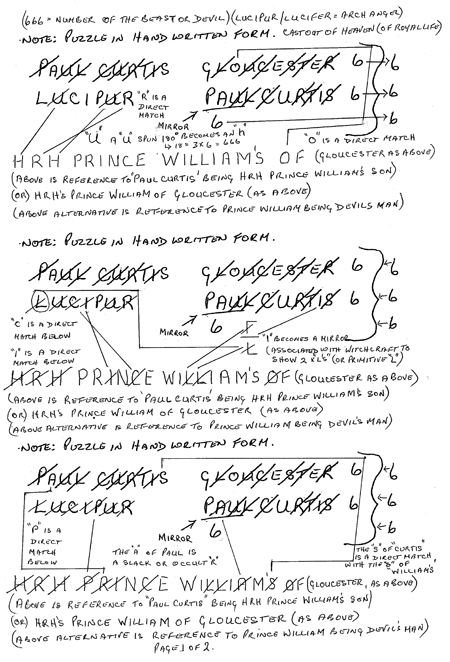 (666 = NUMBER OF THE BEAST OR DEVIL) (LUCIPUR/LUCIFER = ARCH ANGEL)
-NOTE: PUZZLE IN HAND WRITTEN FORM. CAST OUT OF HEAVEN (OF ROYAL LIFE)
PAUL CURTIS GLOUCESTER 6 6
LUCIPUR "R" IS A DIRECT MATCH PAUL CURTIS 6 6
MIRROR 6 6
"U" A "U" SPUN 180° BECOMES AN "H"
18 = 3x6 = 666 "O" IS A DIRECT MATCH
HRH PRINCE WILLIAM'S OF (GLOUCESTER AS ABOVE)
(ABOVE IS REFERENCE TO "PAUL CURTIS" BEING HRH PRINCE WILLIAM'S SON)
(OR) HRH'S PRINCE WILLIAM OF GLOUCESTER (AS ABOVE)
(ABOVE ALTERNATIVE IS REFERENCE TO PRINCE WILLIAM BEING DEVILS MAN)
-NOTE: PUZZLE IN HAND WRITTEN FORM.
PAUL CURTIS GLOUCESTER 6 6
LUCIPUR PAUL CURTIS 6 6
MIRROR 6 6
"C" IS A DIRECT MATCH BELOW
"I" IS A DIRECT MATCH BELOW
"I" BECOMES A MIRROR
(ASSOCIATED WITH WITCHCRAFT TO
SHOW 2 x L'S" (OR PRIMITIVE "L")
HRH PRINCE WILLIAM'S OF (GLOUCESTER AS ABOVE)
(ABOVE IS REFERENCE TO "PAUL CURTIS" BEING HRH PRINCE WILLIAM'S SON)
(OR) HRH'S PRINCE WILLIAM OF GLOUCESTER (AS ABOVE)
(ABOVE ALTERNATIVE IS REFERENCE TO PRINCE WILLIAM BEING DEVIL'S MAN)
-NOTE: PUZZLE IN HAND WRITTEN FORM.
PAUL CURTIS GLOUCESTER 6 6
LUCIPUR PAUL CURTIS 6 6
MIRROR 6 6
"P" IS A DIRECT MATCH BELOW
THE "A" OF PAUL IS
A SLACK OR OCCULT
THE "S" OF "CURTIS"
IS A DIRECT MATCH
WITH THE "S" OF
"WILLIAM'S"
HRH PRINCE WILLIAM'S OF (GLOUCESTER, AS ABOVE)
(ABOVE IS REFERENCE TO "PAUL CURTIS" BEING HRH PRINCE WILLIAM'S SON)
(OR) HRH'S PRINCE WILLIAM OF GLOUCESTER (AS ABOVE)
(ABOVE ALTERNATIVE IS REFERENCE TO PRINCE WILLIAM BEING DEVILS MAN)
PAGE 1 OF 2.